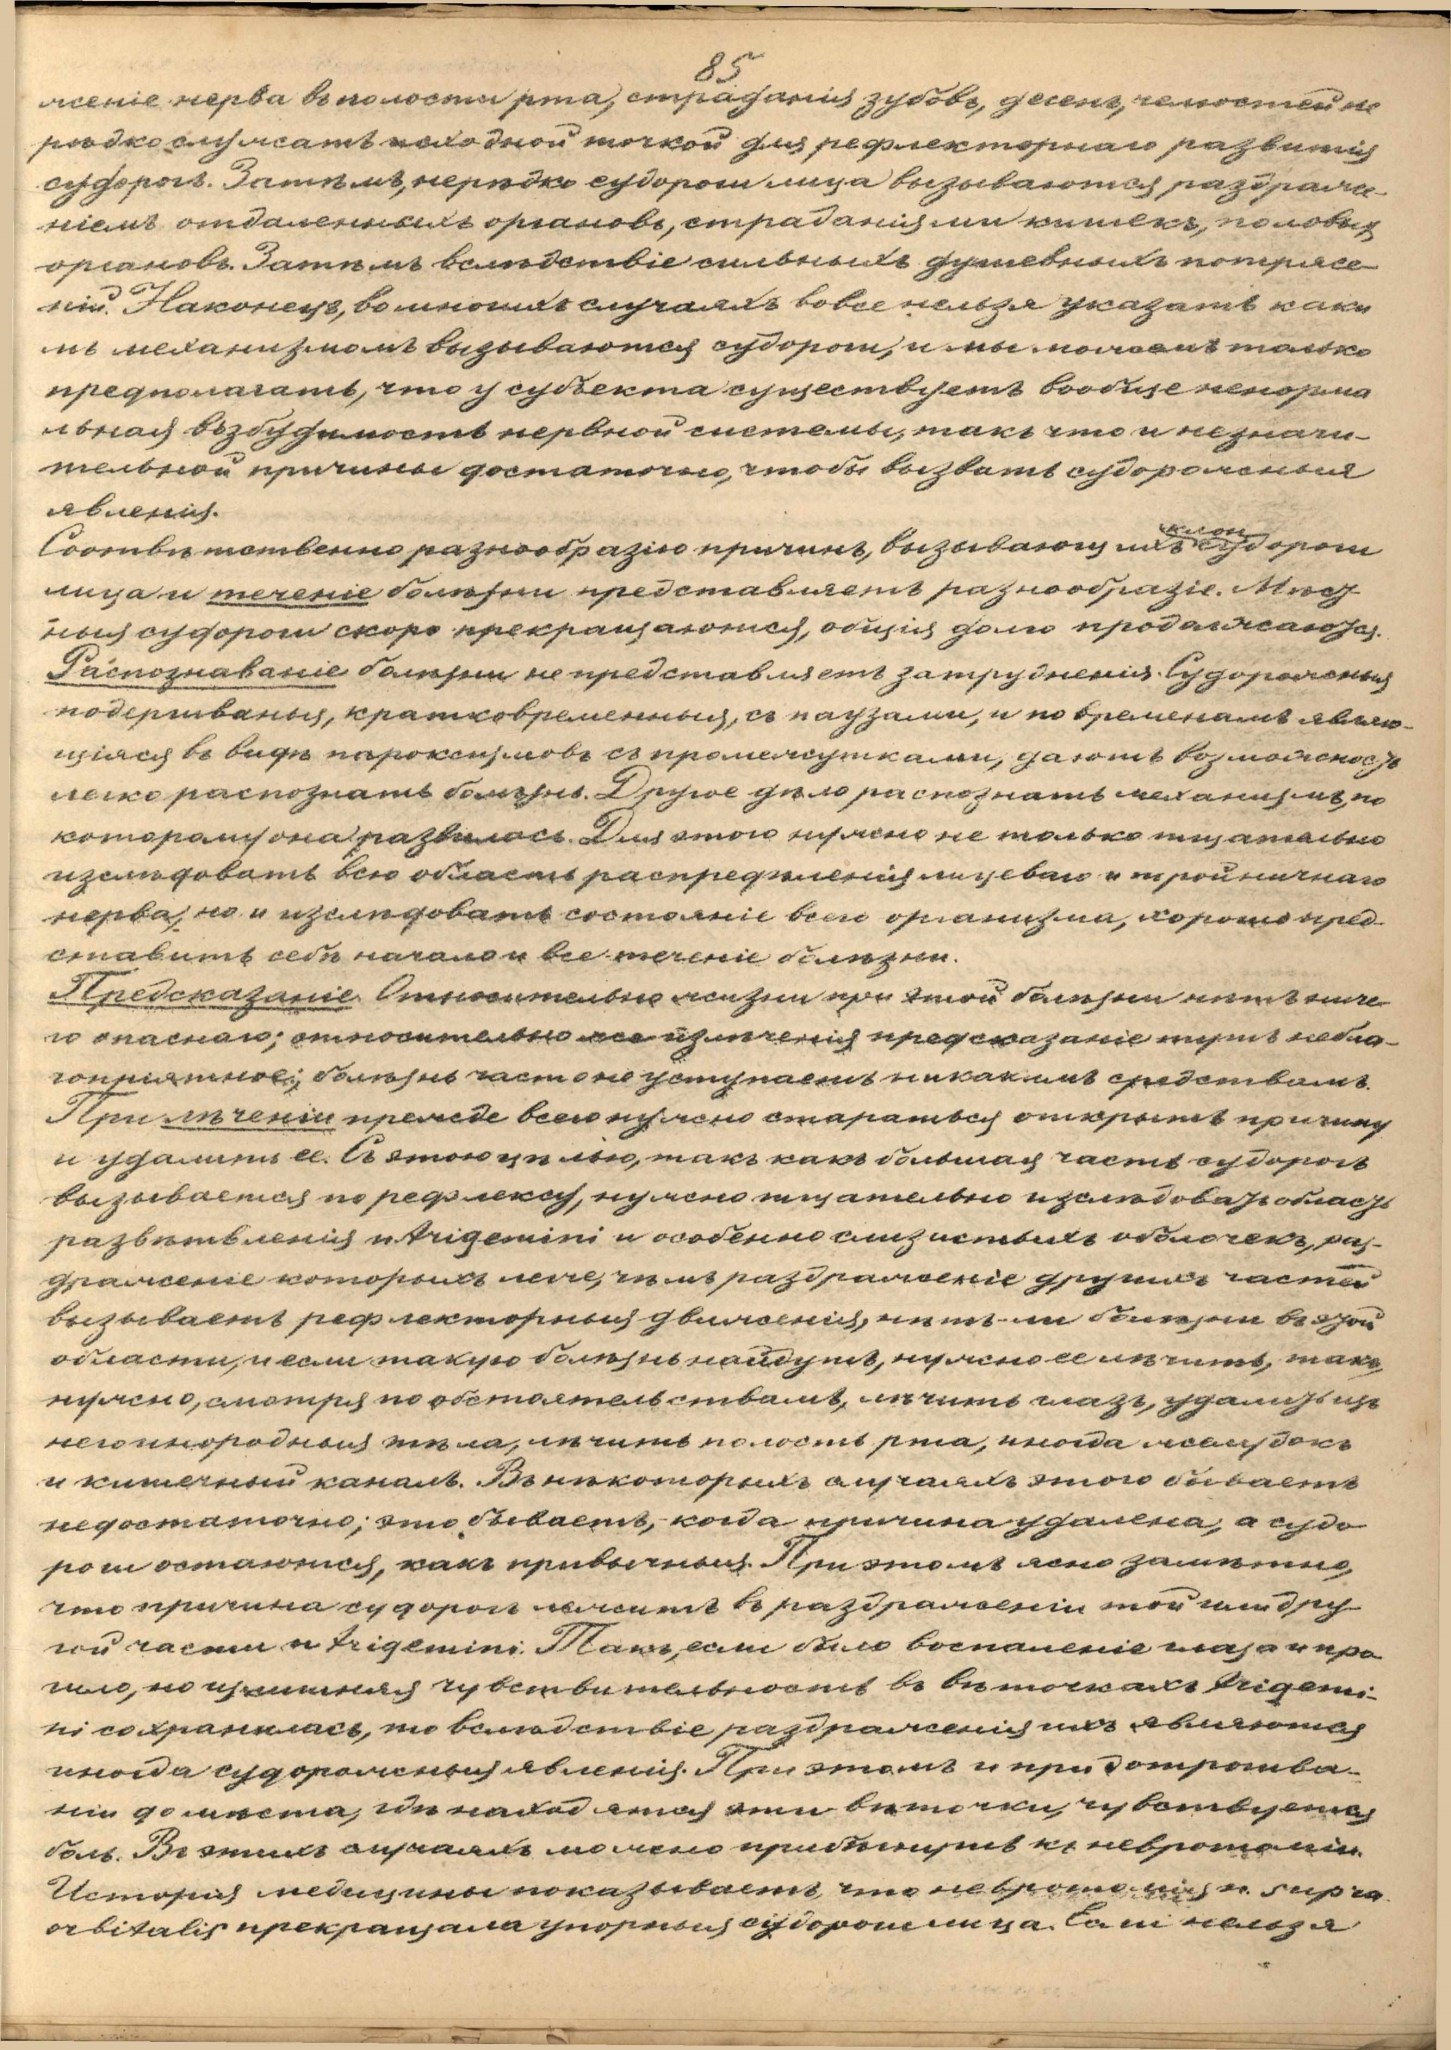 85
жсеніе нерва въ полости рта, страданія зубовъ, десенъ, челюстей не
рѣдко служатъ исходной точкой для рефлекторнаго развитія
судорогъ. Затѣмъ, нерѣдко судороги лица вызываются раздраже-
ніемъ отдаленныхъ органовъ, страданіями кишекъ, половыхъ
органовъ. Затѣмъ вслѣдствіе сильныхъ душевныхъ потрясе-
ній. Наконецъ, во многихъ случаяхъ вовсе нельзя указать каки
мъ механизмомъ вызываются судороги, и мы можемъ только
предполагать, что у субъекта существуетъ вообще ненорма
льная възбудимость нервной системы, такъ что и незначи-
тельной причины достаточно, чтобы вызвать судорожныя
явленія.
Соотвѣтственно разнообразію причинъ, вызывающихъ клон судороги
лица и теченіе болѣзни представляетъ разнообразіе. Мѣст
ныя судороги скоро прекращаются, общія долго продолжаются.
Распознаваніе болѣзни не представляетъ затрудненія. Судорожныя
подергиванья, кратковременныя, съ паузами, и по временамъ являю-
щіяся въ видѣ пароксизмовъ съ промежутками, даютъ возможность
легко распознать болѣзнь. Другое дѣло распознать механизмъ, по
которому она развилась. Для этого нужно не только тщательно
изслѣдовать всю область распредѣленія лицеваго и тройничнаго
нерва, но и изслѣдовать состояніе всего организма, хорошо пред-
ставить себѣ начало и все теченіе болѣзни.
Предсказаніе. Относительно жизни при этой болѣзни нѣтъ ниче-
го опаснаго; относительно же излѣченія предсказаніе тутъ небла-
гопріятное; болѣзнь часто не уступаетъ никакимъ средствамъ.
При лѣченіи прежде всего нужно стараться открыть причину
и удалить ее. Съ этою цѣлью, такъ какъ большая часть судорогъ
вызывается по рефлексу, нужно тщательно изслѣдовать область
развѣтвленія n. trigemini и особенно слизистыхъ оболочекъ, раз-
драженіе которыхъ легче, чѣмъ раздраженіе другихъ частей
вызываетъ рефлекторныя движенія, нѣтъ-ли болѣзни въ этой
области, и если такую болѣзнь найдутъ, нужно ее лѣчить, такъ
нужно, смотря по обстоятельствамъ, лѣчить глазъ, удалить изъ
него инородныя тѣла, лѣчить полость рта, иногда желудокъ
и кишечный каналъ. Въ нѣкоторыхъ случаяхъ этого бываетъ
недостаточно; это бываетъ, когда причина удалена, а судо
роги остаются, какъ привычныя. При этомъ ясно замѣтно,
что причина судорогъ лежитъ въ раздраженіи той или дру-
гой части n. trigemini. Такъ, если было воспаленіе глаза и про
шло, но излишняя чувствительность въ вѣточкахъ trigemi-
ni сохранилась, то вслѣдствіе раздраженія ихъ являются
иногда судорожныя явленія. При этомъ и при дотрогива-
ніи до мѣста, гдѣ находятся эти вѣточки, чувствуется
боль. Въ этихъ случаяхъ можно прибѣгнуть къ невротоміи.
Исторія медицины показываетъ, что невротомія n. supra
orbitalis прекращала упорныя судороги лица. Если нельзя